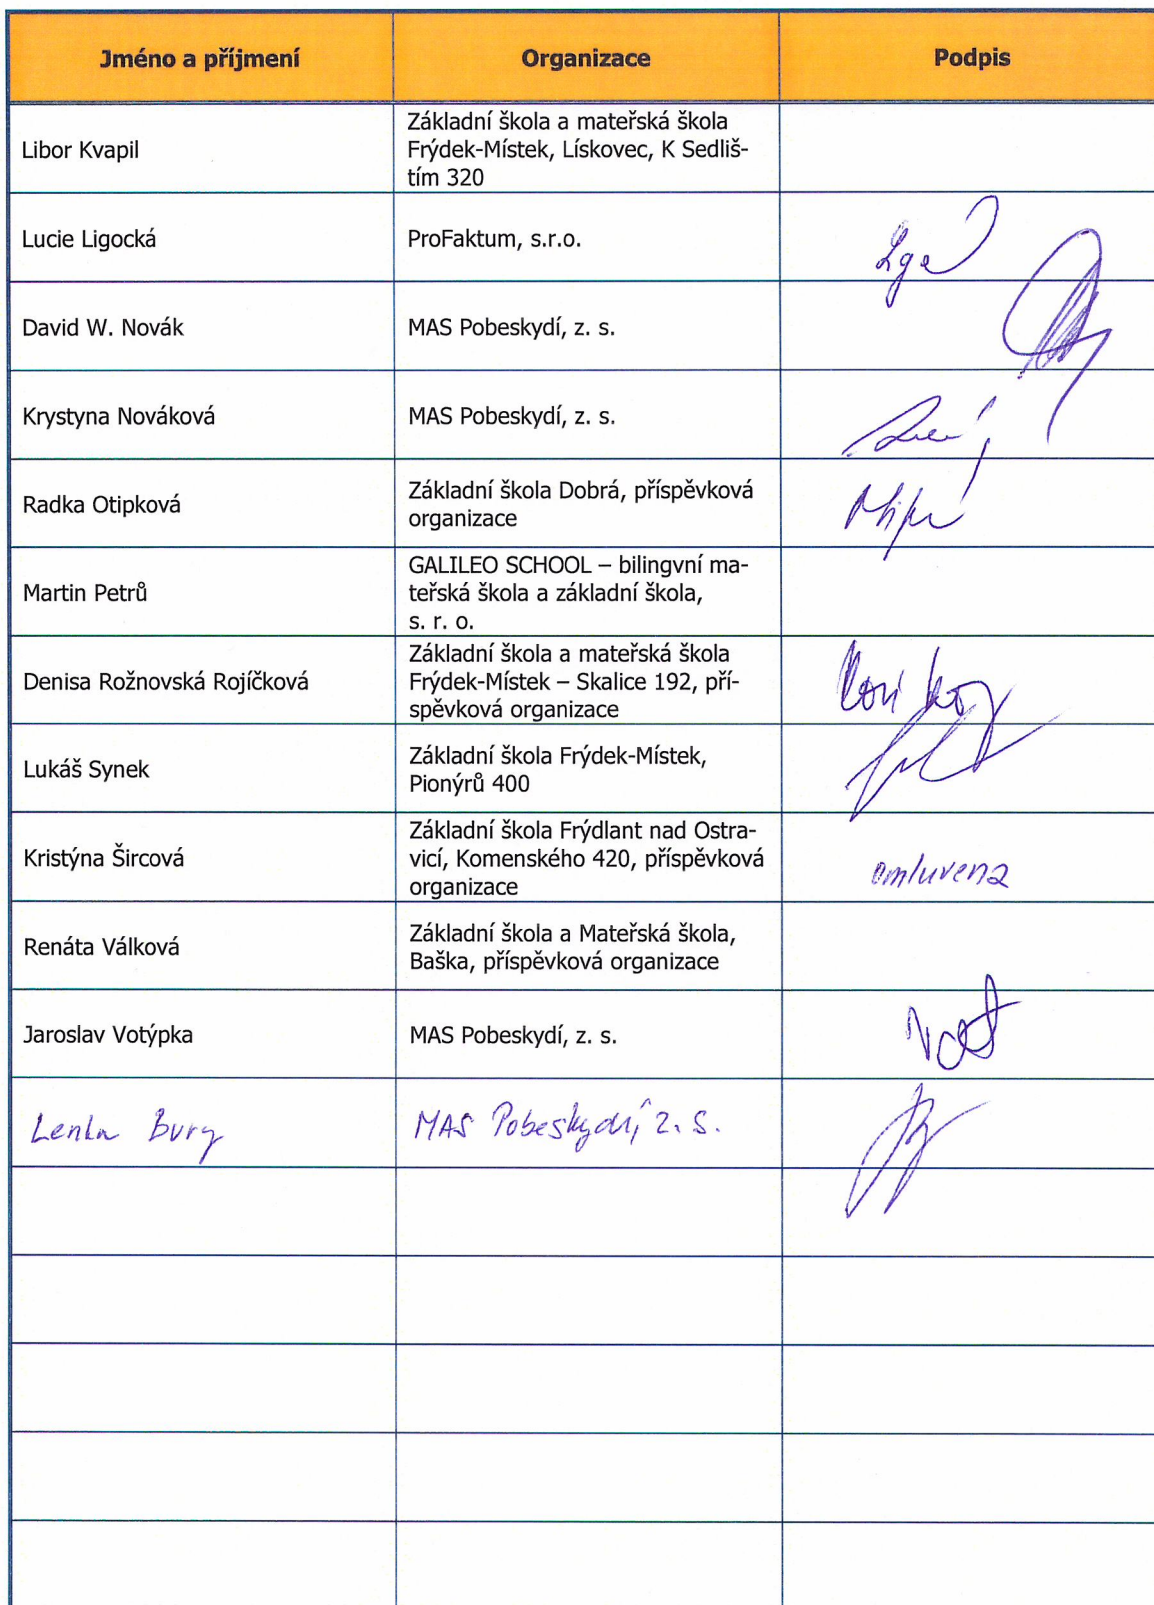 Jméno a příjmení Organizace Podpis
Libor Kvapil
Základní škola a mateřská škola
Frýdek-Místek, Lískovec, K Sedliš-
tím 320
Lucie Ligocká
ProFaktum, s.r.o.
David W. Novák
MAS Pobeskydí, z. s.
Krystyna Nováková
MAS Pobeskydí, z. s.
Radka Otipková
Základní škola Dobrá, příspěvková
organizace
Martin Petrů
GALILEO SCHOOL – bilingvní ma-
teřská škola a základní škola,
s. r. o.
Denisa Rožnovská Rojíčková
Základní škola a mateřská škola
Frýdek-Místek – Skalice 192, pří-
spěvková organizace
Lukáš Synek
Základní škola Frýdek-Místek,
Pionýrů 400
Kristýna Šircová
Základní škola Frýdlant nad Ostra-
vicí, Komenského 420, příspěvková
organizace
omluvena
Renáta Válková
Základní škola a Mateřská škola,
Baška, příspěvková organizace
Jaroslav Votýpka
MAS Pobeskydí, z. s.
Lenka Bury
MAS Pobeskydí, z. s.